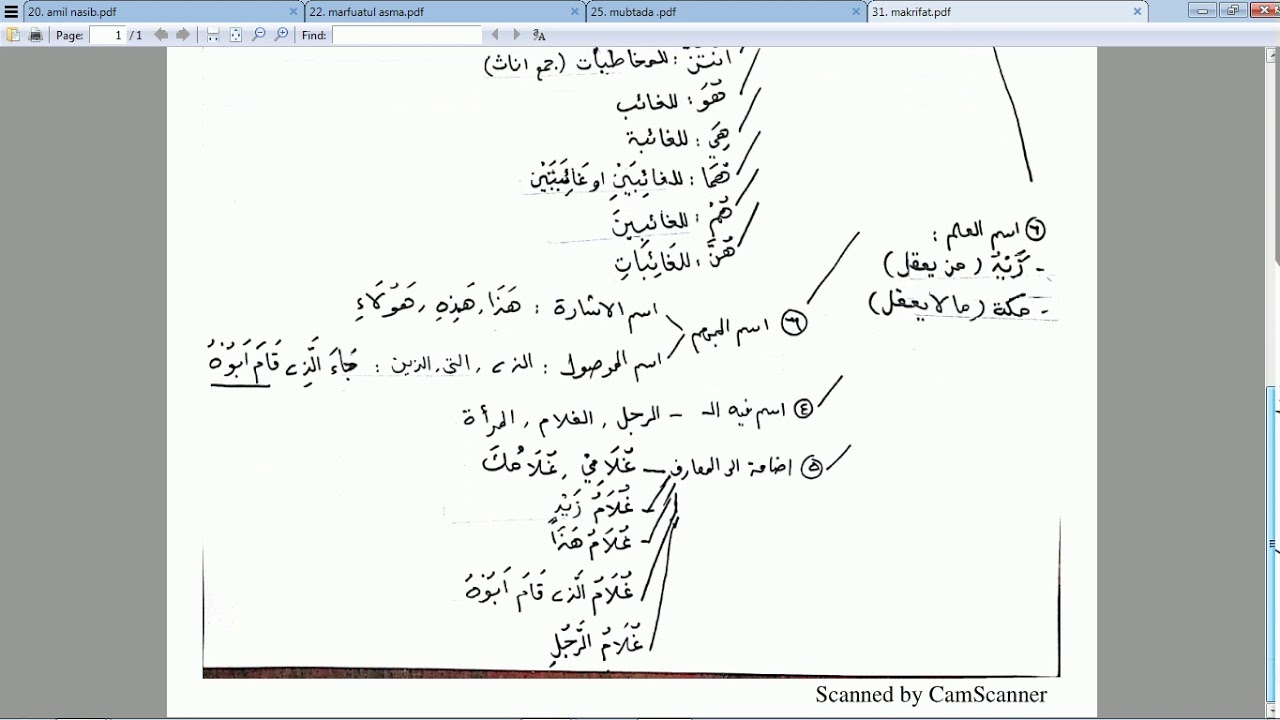 20. amil nasib.pdf
22. marfuatul asma.pdf
25. mubtada .pdf
31. makrifat.pdf
Page: 1 / 1 Find:
انتن : للمخاطبات (جمع اناث)
هُوَ : للغائب
هِيَ : للغائبة
هُمَا : للغائِبَيْنِ او غَائِبَتَيْنِ
هُمْ : للغائبينَ
هُنَّ : للغَائِبَاتِ
② اسم العالم :
- زَيْدٌ (من يعقل)
- مكة (ما لا يعقل)
③ اسم المبهم
اسم الاشارة : هَذَا، هَذِهِ، هَؤُلَاءِ
اسم الموصول : الذى، التى، الذين : جَاءَ الَّذِى قَامَ اَبُوْهُ
④ اسم فيه الـ - الرجل، الغلام، المرأة
⑤ اضافة الى المعارف - غُلَامِيْ، غُلَامُكَ
- غُلَامُ زَيْدٍ
- غُلَامُ هَذَا
غُلَامُ الَّذِى قَامَ اَبُوْهُ
غُلَامُ الرَّجُلِ
Scanned by CamScanner